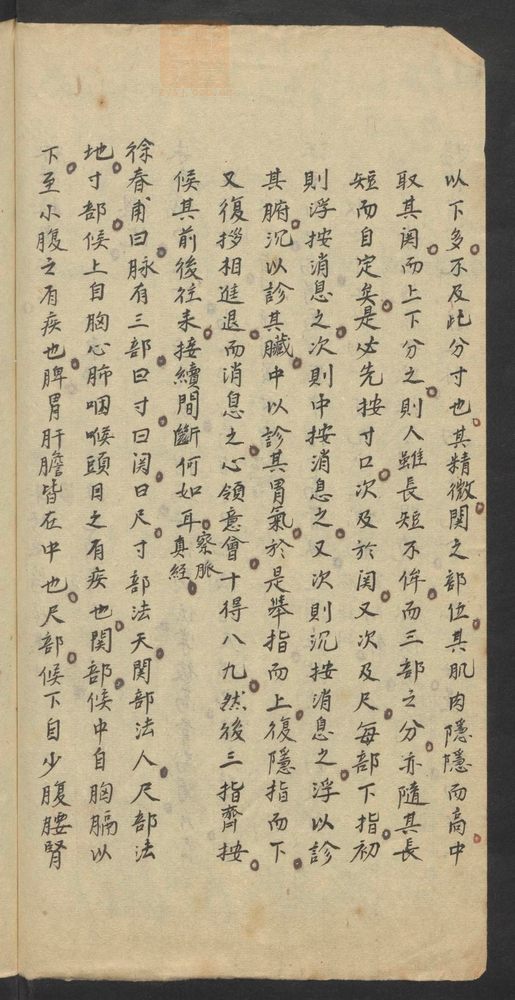 以下多不及此分寸也其精微関之部位其肌肉隱隱而高中
取其関而上下分之則人雖長短不侔而三部之分亦隨其長
短而自定矣是必先按寸口次及於関又次及尺每部下指初
則浮按消息之次則中按消息之又次則沉按消息之浮以診
其腑沉以診其臟中以診其胃氣於是舉指而上復隱指而下
又復挪相進退而消息之心領意會十得八九然後三指齊按
候其前後往来接續間斷何如耳察脈真經
徐春甫曰脉有三部曰寸曰関曰尺寸部法天関部法人尺部法
地寸部候上自胸心肺咽喉頭目之有疾也関部候中自胸膈以
下至小腹之有疾也脾胃肝膽皆在中也尺部候下自少腹腰腎